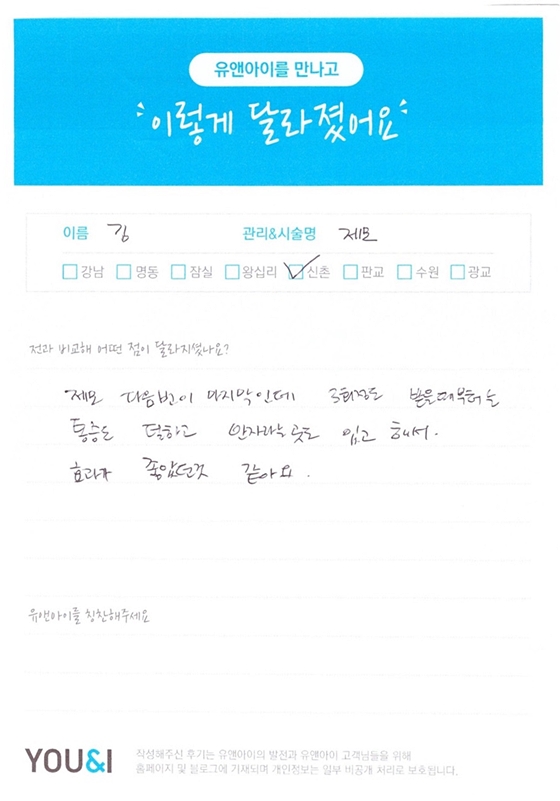 유앤아이를 만나고
이렇게 달라졌어요
이름 김 관리&시술명 제모
강남 명동 잠실 왕십리 신촌 판교 수원 광교
전과 비교해 어떤 점이 달라지셨나요?
제모 다음번이 마지막인데 3회정도 받을때부터는
통증도 덜하고 안자라는 곳도 있고 해서.
효과가 좋았던것 같아요.
유앤아이를 칭찬해주세요
YOU&I
작성해주신 후기는 유앤아이의 발전과 유앤아이 고객님들을 위해
홈페이지 및 블로그에 기재되며 개인정보는 일부 비공개 처리로 보호됩니다.